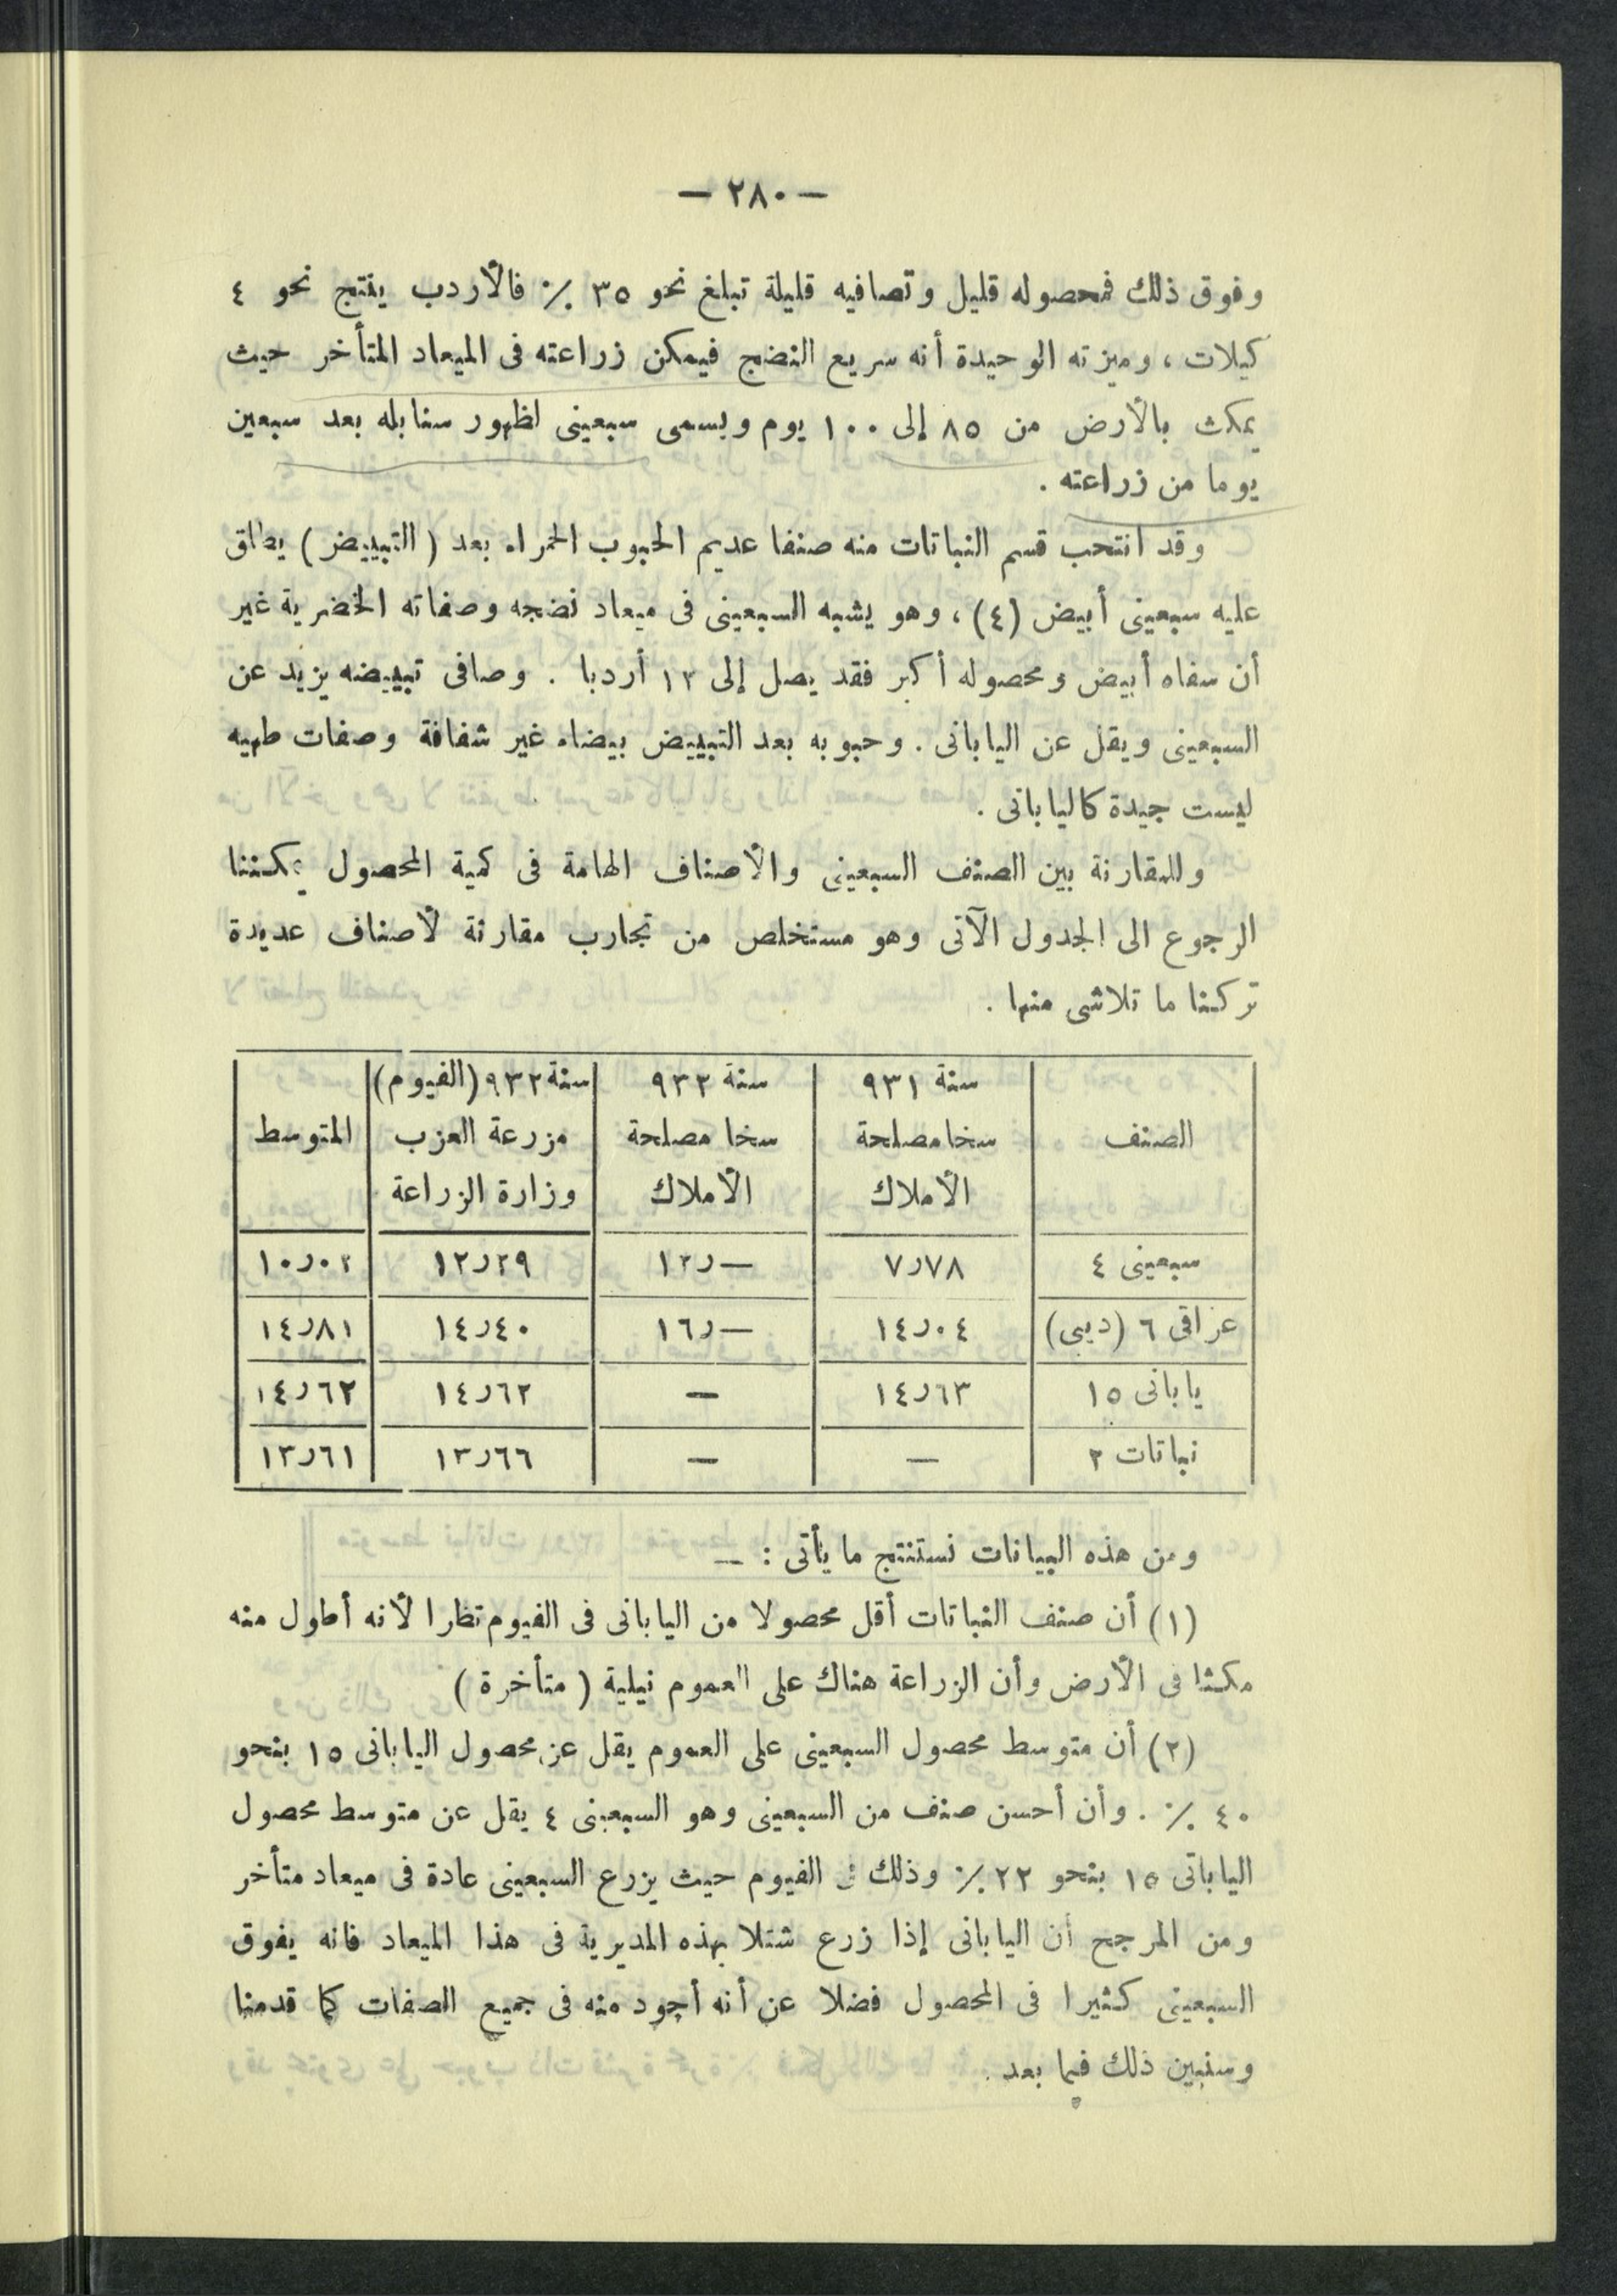 — ٢٨٠ —
وفوق ذلك فمحصوله قليل وتصافيه قليلة تبلغ نحو ٣٥ ٪ فالأردب ينتج نحو ٤
كيلات ، وميزته الوحيدة أنه سريع النضج فيمكن زراعته فى الميعاد المتأخر حيث
يمكث بالأرض من ٨٥ إلى ١٠٠ يوم ويسمى سبعينى لظهور سنابله بعد سبعين
يوما من زراعته .
وقد انتحب قسم النباتات منه صنفا عديم الحبوب الحمراء بعد ( التبييض ) يطلق
عليه سبعينى أبيض (٤) ، وهو يشبه السبعينى فى ميعاد نضجه وصفاته الخضرية غير
أن سفاه أبيض ومحصوله أكبر فقد يصل إلى ١٢ أردبا . وصافى تبييضه يزيد عن
السبعينى ويقل عن اليابانى . وحبوبه بعد التبييض بيضاء غير شفافة وصفات طهيه
ليست جيدة كاليابانى .
وللمقارنة بين الصنف السبعينى والأصناف الهامة فى كمية المحصول يمكننا
الرجوع الى الجدول الآتى وهو مستخلص من تجارب مقارنة لأصناف عديدة
تركنا ما تلاشى منها .
الصنف | سنة ٩٣١ سخا مصلحة الأملاك | سنة ٩٣٢ سخا مصلحة الأملاك | سنة ٩٣٢ (الفيوم) مزرعة العزب وزارة الزراعة | المتوسط
سبعينى ٤ | ٧٫٧٨ | ١٢٫— | ١٢٫٢٩ | ١٠٫٠٢
عراقى ٦ (ديبى) | ١٤٫٠٤ | ١٦٫— | ١٤٫٤٠ | ١٤٫٨١
يابانى ١٥ | ١٤٫٦٣ | — | ١٤٫٦٢ | ١٤٫٦٢
نباتات ٢ | — | — | ١٣٫٦٦ | ١٣٫٦١
ومن هذه البيانات نستنتج ما يأتى : —
(١) أن صنف النباتات أقل محصولا من اليابانى فى الفيوم نظرا لأنه أطول منه
مكثا فى الأرض وأن الزراعة هناك على العموم نيلية ( متأخرة )
(٢) أن متوسط محصول السبعينى على العموم يقل عن محصول اليابانى ١٥ بنحو
٤٠ ٪ . وأن أحسن صنف من السبعينى وهو السبعينى ٤ يقل عن متوسط محصول
اليابانى ١٥ بنحو ٢٢ ٪ وذلك فى الفيوم حيث يزرع السبعينى عادة فى ميعاد متأخر
ومن المرجح أن اليابانى إذا زرع شتلا بهذه المديرية فى هذا الميعاد فانه يفوق
السبعينى كثيرا فى المحصول فضلا عن أنه أجود منه فى جميع الصفات كما قدمنا
وسنبين ذلك فيما بعد .